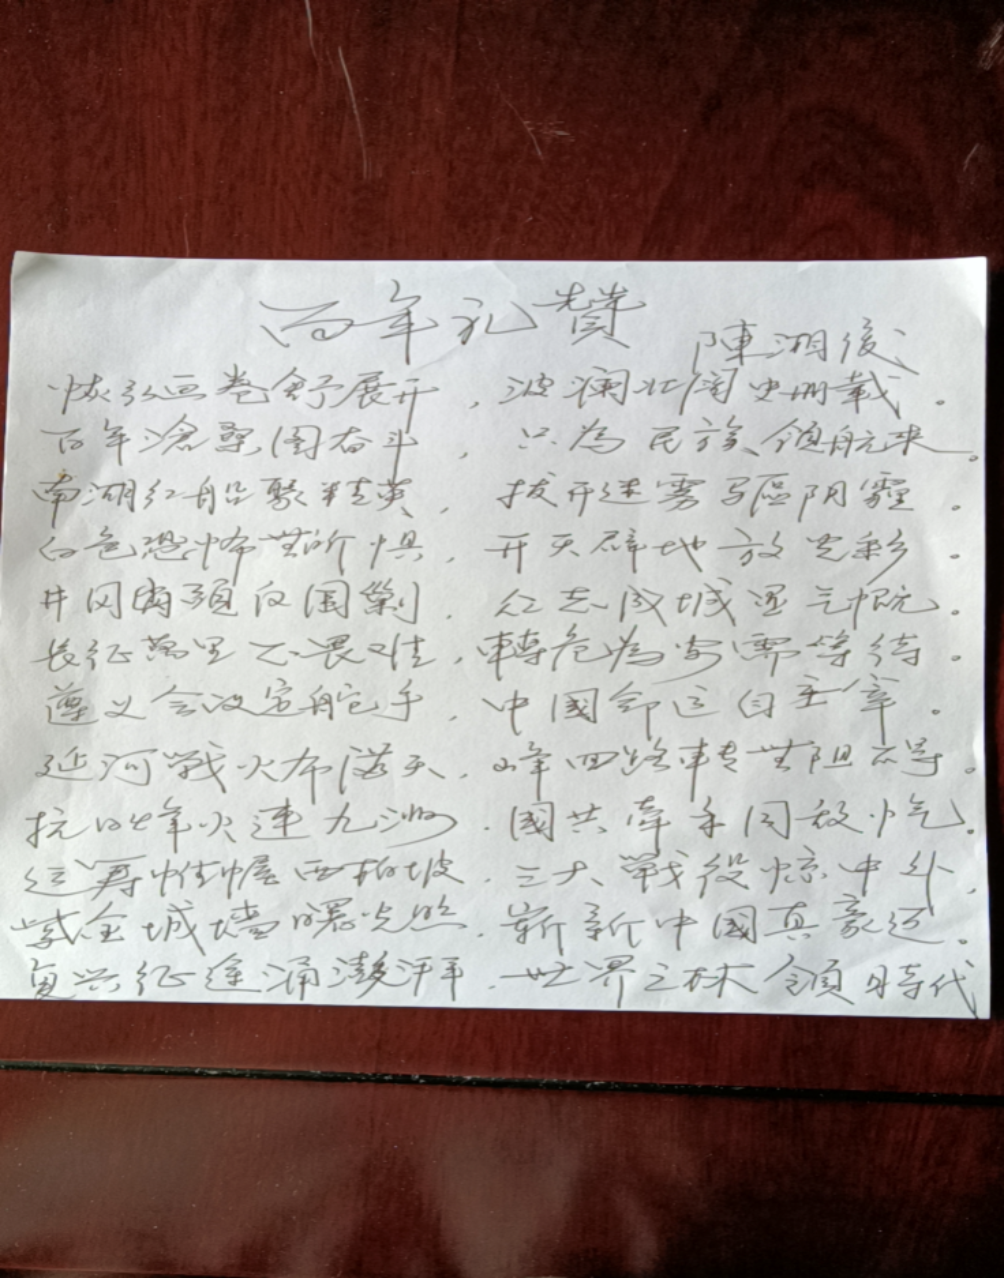 百年礼赞
陳湖俊
恢弘画卷舒展开，波澜壮阔史册載。
百年滄桑图奋斗，只為民族領航来。
南湖红船聚精英，拨开迷雾驅阴霾。
白色恐怖無所惧，开天辟地放光彩。
井冈兩頭反围剿，众志成城浩气慨。
长征萬里不畏难，轉危為安需等待。
遵义会议定舵手，中國命运自主宰。
延河戰火布滿天，峰回路轉無阻碍。
抗日烽火連九洲，國共牽手同敌忾。
运筹帷幄西柏坡，三大戰役惊中外。
紫金城墙曙光照，崭新中國真豪迈。
复兴征途涌澎湃，世界之林領時代